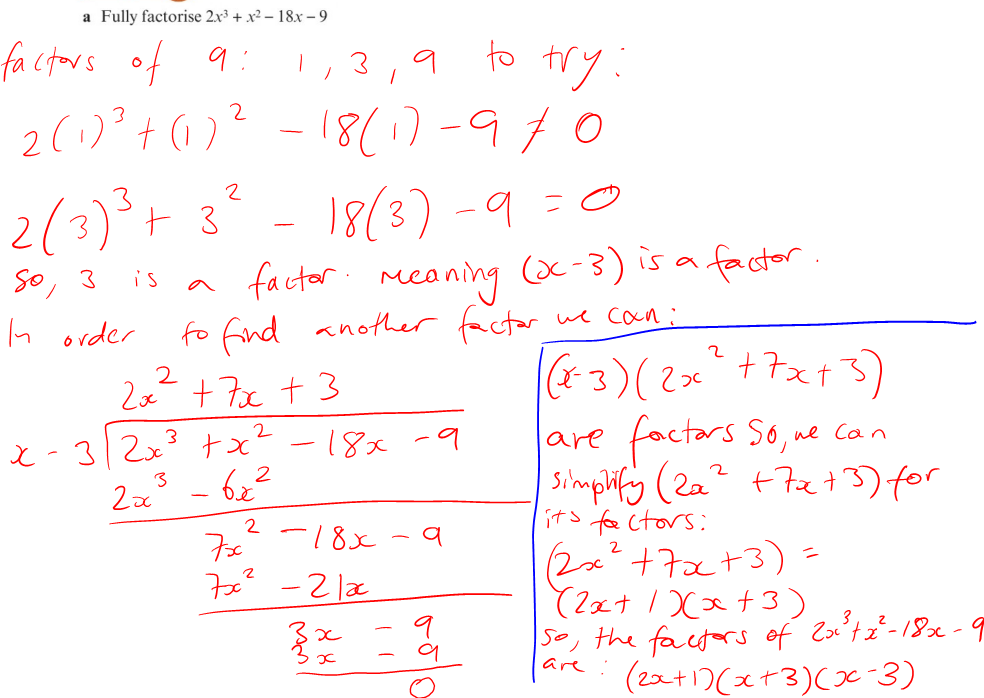 a Fully factorise 2x³ + x² – 18x – 9
factors of 9: 1, 3, 9 to try:
2(1)³ + (1)² – 18(1) – 9 ≠ 0
2(3)³ + 3² – 18(3) – 9 = 0
so, 3 is a factor. meaning (x-3) is a factor.
In order to find another factor we can:
2x² + 7x + 3
x - 3 2x³ + x² – 18x – 9
2x³ – 6x²
7x² – 18x – 9
7x² – 21x
3x – 9
3x – 9
0
(x-3)(2x² + 7x + 3)
are factors so, we can
simplify (2x² + 7x + 3) for
its factors:
(2x² + 7x + 3) =
(2x + 1)(x + 3)
so, the factors of 2x³+x²-18x-9
are: (2x+1)(x+3)(x-3)